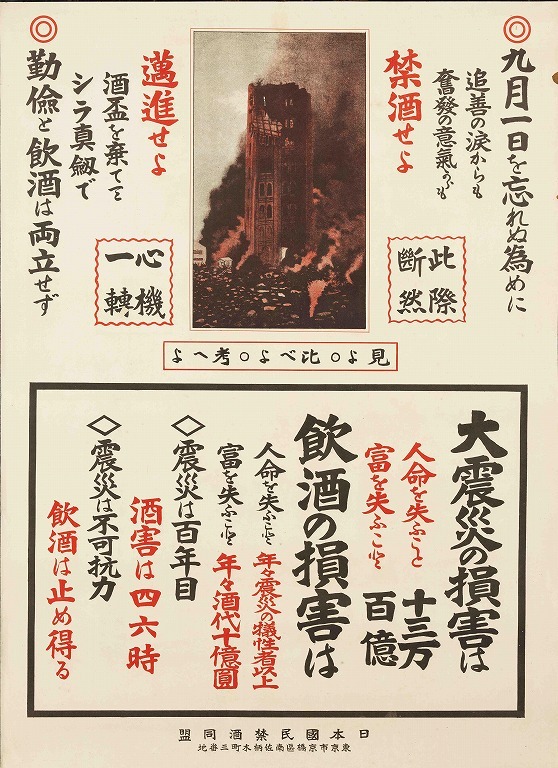 ◎九月一日を忘れぬ為めに
追善の涙からも
奮發の意氣からも
禁酒せよ
此際
斷然
邁進せよ
酒盃を棄てゝ
シラ真劔で
心機
一轉
◎勤儉と飲酒は両立せず
見よ○比べよ○考へよ
大震災の損害は
人命を失ふこと 十三万
富を失ふこと 百億
飲酒の損害は
人命を失ふこと 年々震災の犠牲者以上
富を失ふこと 年々酒代十億圓
◇震災は百年目
酒害は四六時
◇震災は不可抗力
飲酒は止め得る
日本國民禁酒同盟
東京市京橋區南佐柄木町三番地